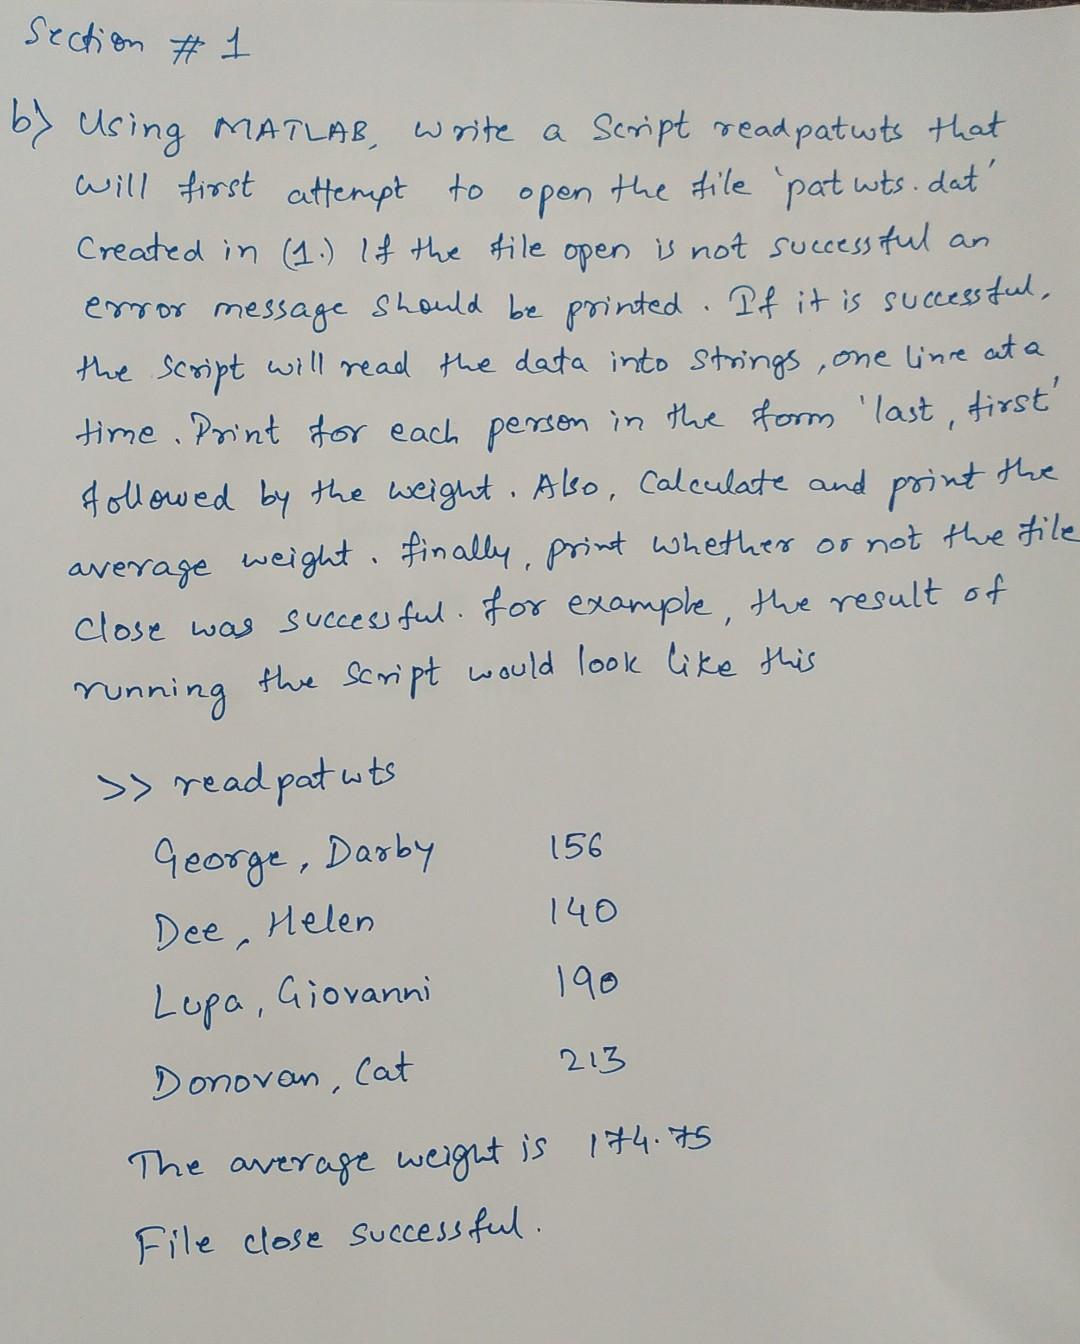 Section # 1
b) Using MATLAB, write a Script readpatwts that
will first attempt to open the file 'patwts.dat'
Created in (1.) If the file open is not successful an
error message should be printed. If it is successful,
the script will read the data into strings, one line at a
time. Print for each person in the form 'last, first'
followed by the weight. Also, Calculate and print the
average weight. finally, print whether or not the file
Close was successful. for example, the result of
running the script would look like this
>> readpatwts
George, Darby 156
Dee, Helen 140
Lupa, Giovanni 190
Donovan, Cat 213
The average weight is 174.75
File close successful.